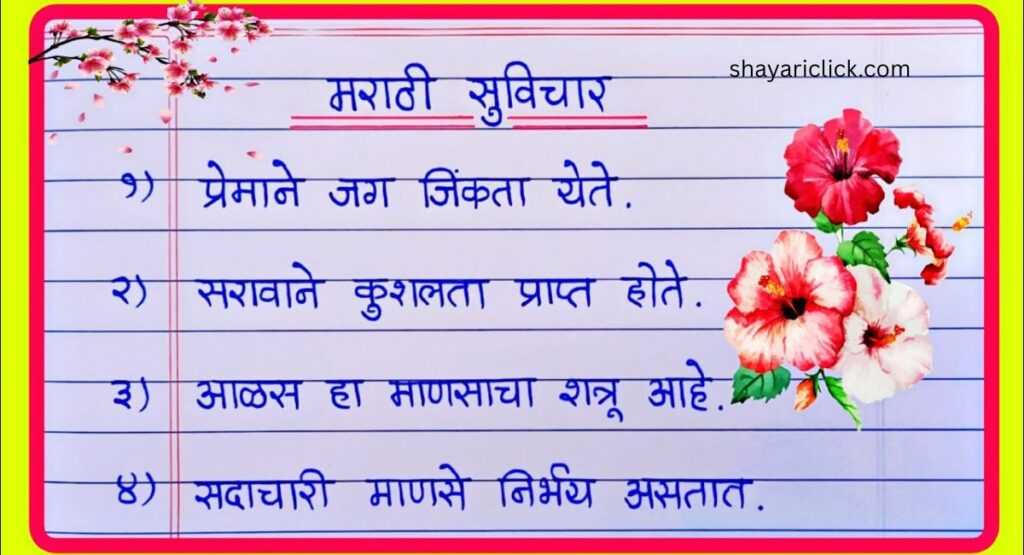 shayariclick.com
मराठी सुविचार
१) प्रेमाने जग जिंकता येते.
२) सरावाने कुशलता प्राप्त होते.
३) आळस हा माणसाचा शत्रू आहे.
४) सदाचारी माणसे निर्भय असतात.